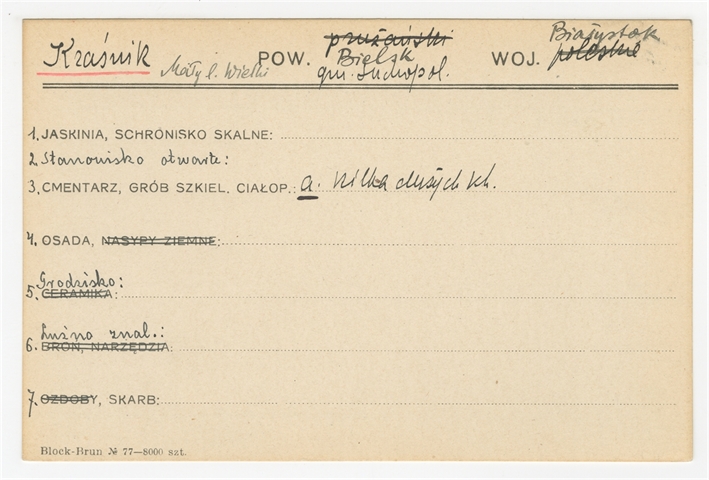 Kraśnik Mały l. Wielki POW. prużański WOJ. Białystok
Bielsk poleskie
gm. Suchopol.
1. JASKINIA, SCHRONISKO SKALNE:
2. Stanowisko otwarte:
3. CMENTARZ, GRÓB SZKIEL. CIAŁOP.: a. kilka dużych kh.
4. OSADA, NASYPY ZIEMNE:
Grodzisko:
5. CERAMIKA:
Luźno znal.:
6. BROŃ, NARZĘDZIA:
7. OZDOBY, SKARB:
Block-Brun № 77—8000 szt.